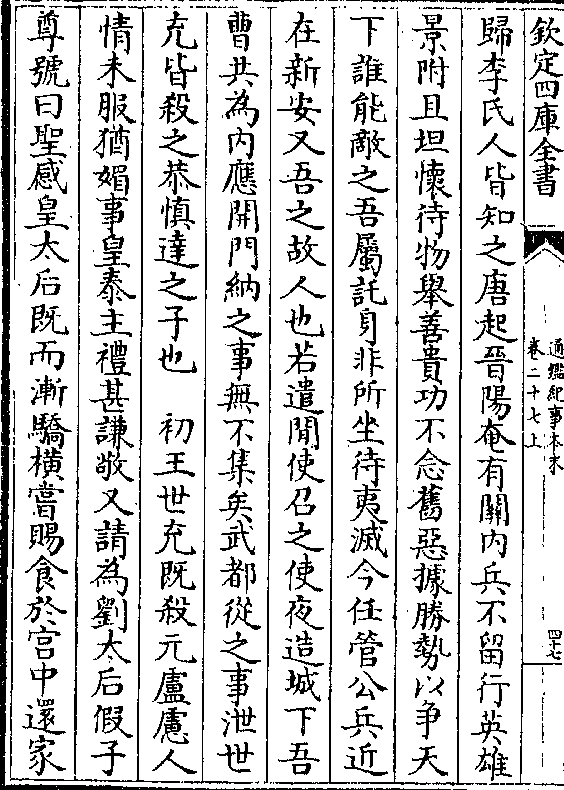 欽定四庫全書
通鑑紀事本末
卷二十七上
四十七
歸李氏人皆知之唐起晉陽奄有關内兵不留行英雄
景附且坦懷待物舉善貴功不念舊惡據勝勢以争天
下誰能敵之吾屬託身非所坐待夷滅今任管公兵近
在新安又吾之故人也若遣間使召之使夜造城下吾
曹共為内應開門納之事無不集矣武都從之事泄世
充皆殺之恭慎達之子也　初王世充既殺元盧慮人
情未服猶媚事皇泰主禮甚謙敬又請為劉太后假子
尊號曰聖感皇太后既而漸驕横嘗賜食於宫中還家